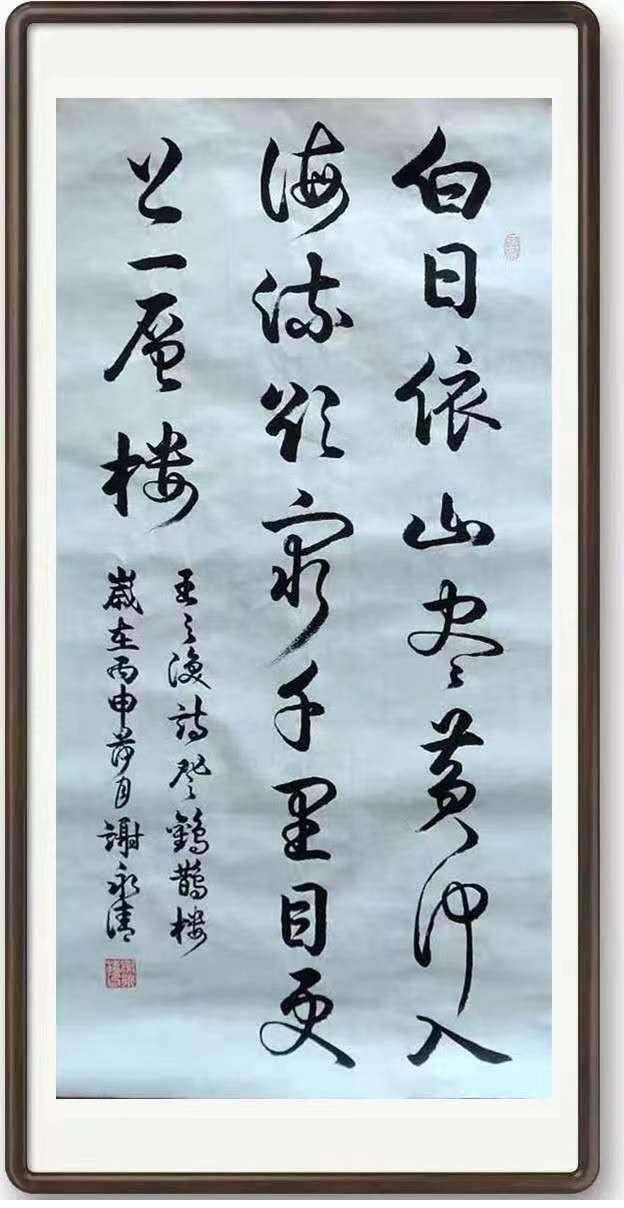 白日依山尽黄河入
海流欲穷千里目更
上一层楼
王之涣诗登鸛鵲楼
歲在丙申月謝永清